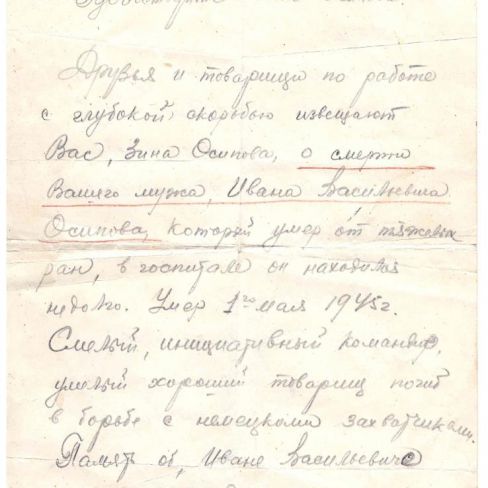 Друзья и товарищи по работе
с глубокой скорбью извещают
Вас, Зина Осипова, о смерти
Вашего мужа, Ивана Васильевича
Осипова, который умер от тяжелых
ран, в госпитале он находился
недолго. Умер 1го мая 1945г.
Смелый, инициативный командир,
умелый хороший товарищ погиб
в борьбе с немецкими захватчиками.
Память об, Иване Васильевиче